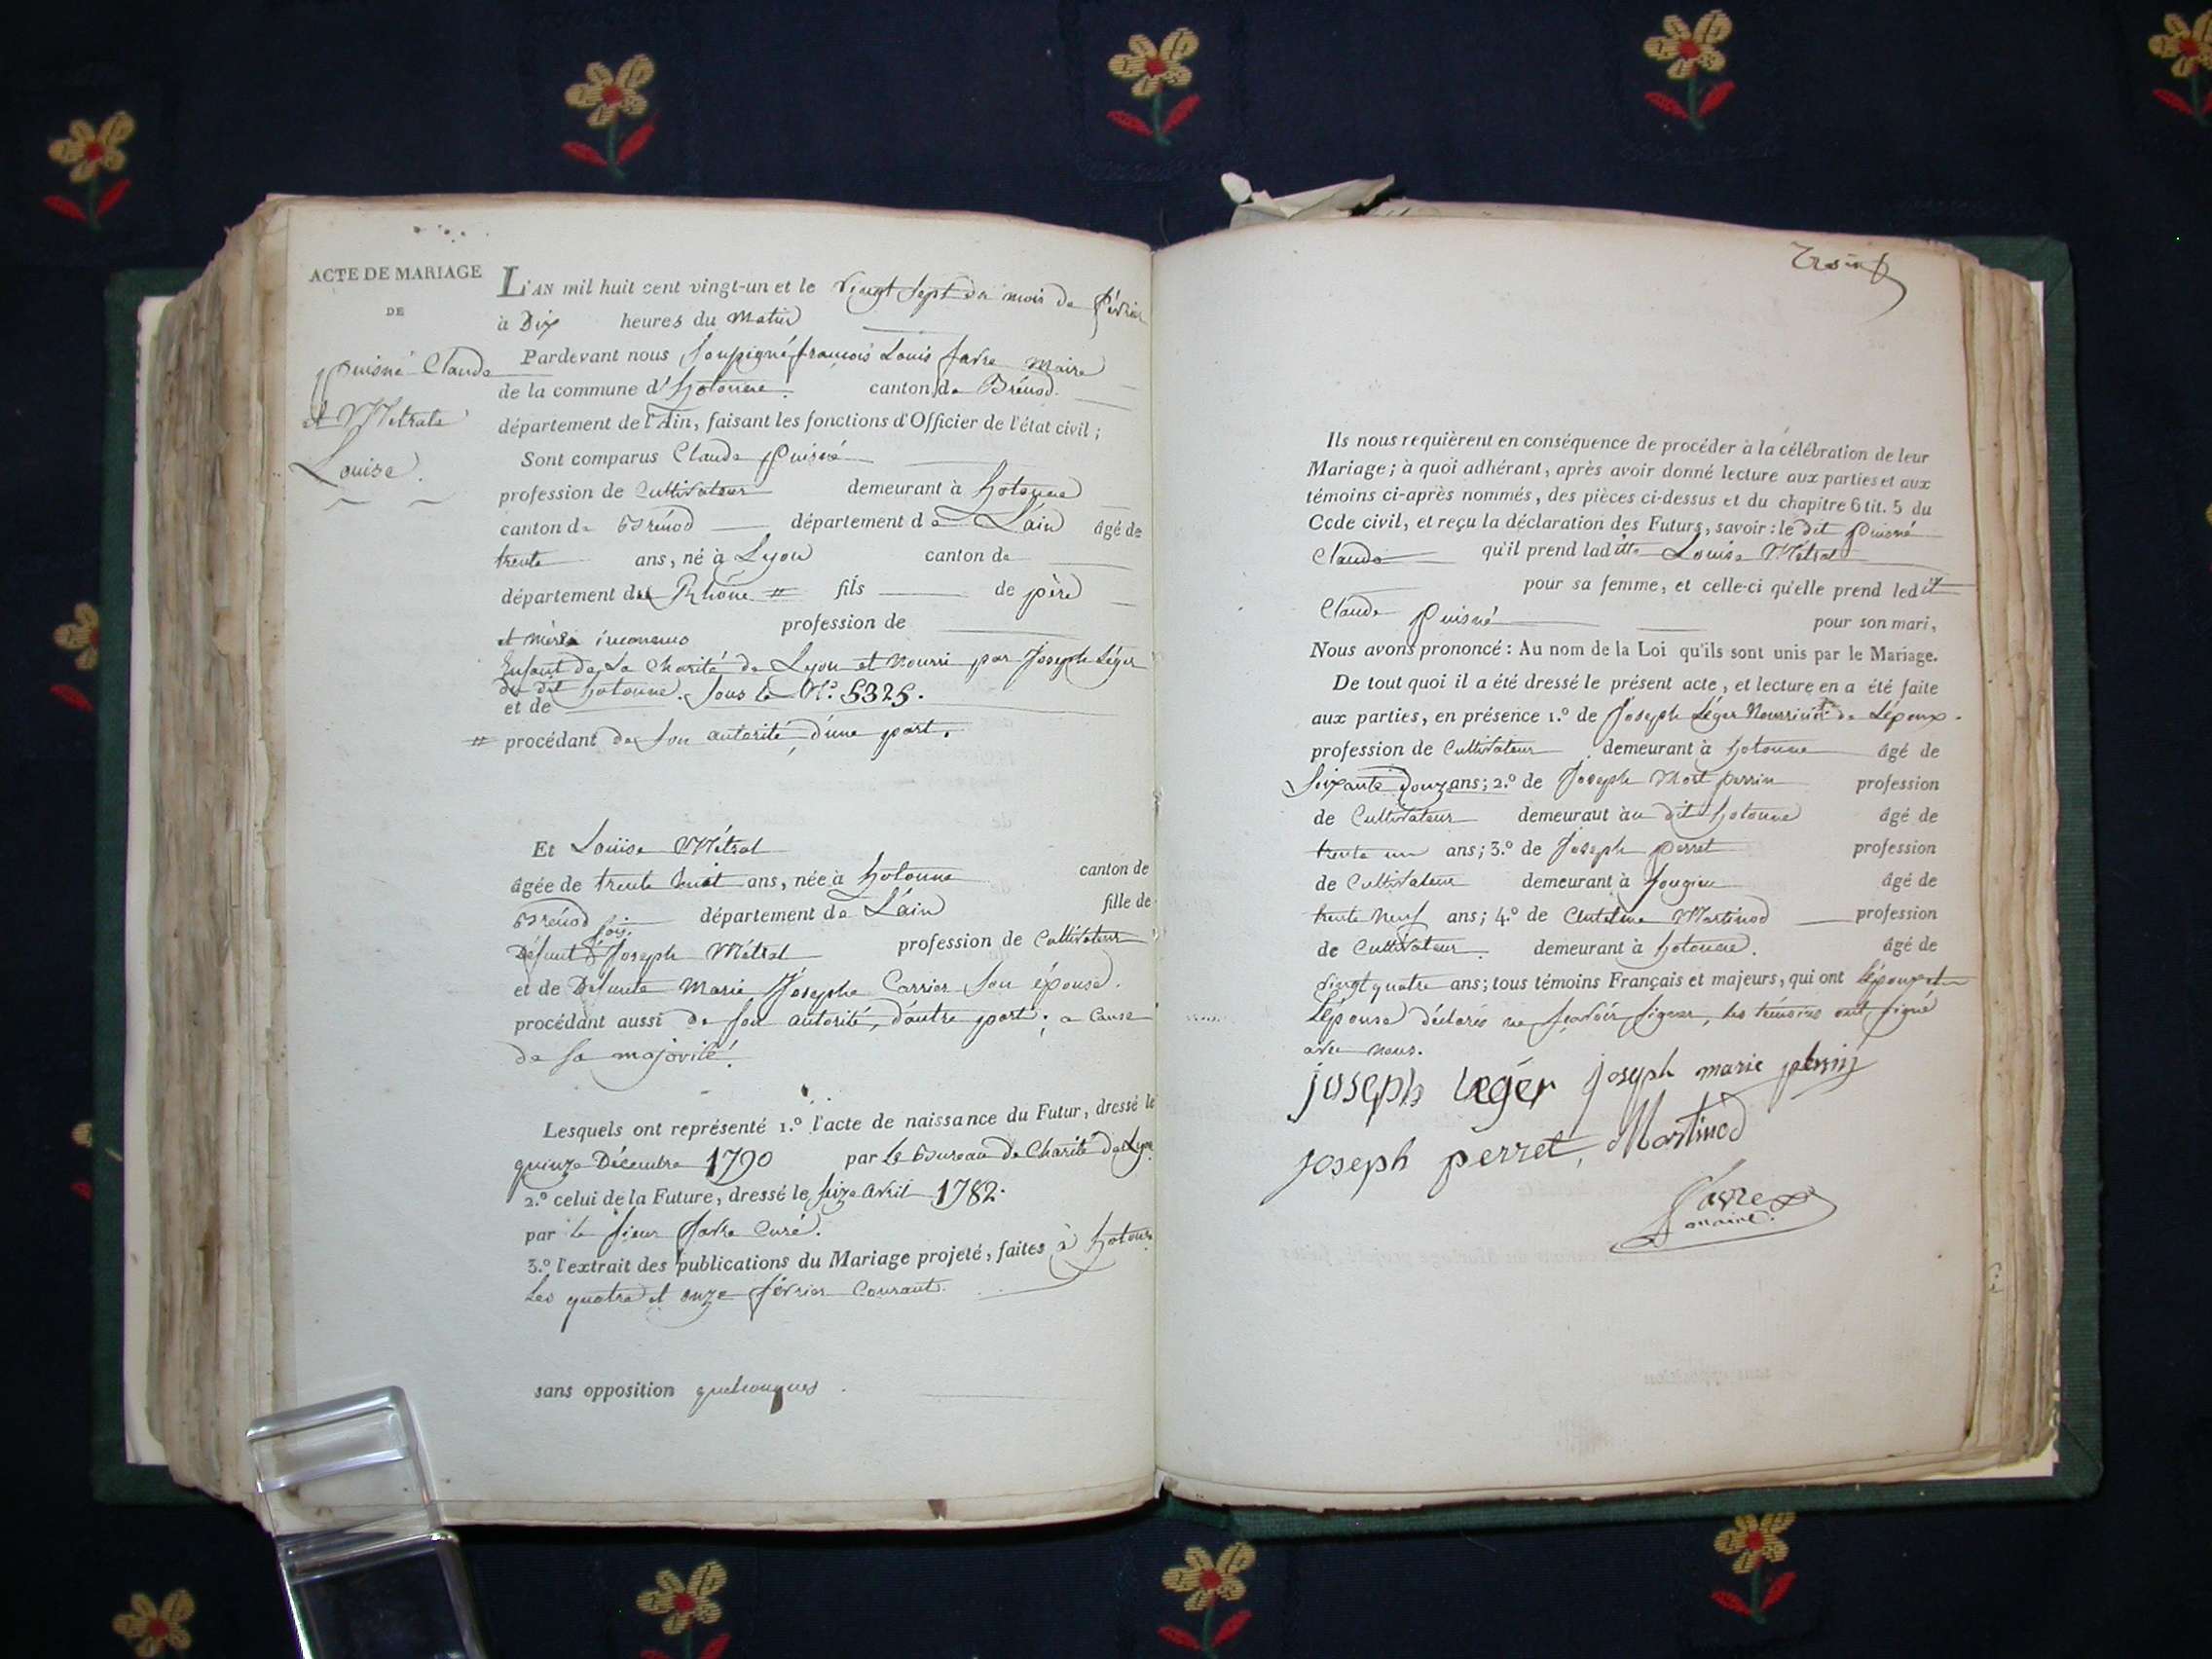 ACTE DE MARIAGE
DE
puisné Claude
et Métrale
Louise.
L'AN mil huit cent vingt-un et le vingt sept du mois de février
à Dix heures du matin
Pardevant nous soussigné françois Louis favre maire
de la commune d'hotonne. canton de Brénod.
département de l'Ain, faisant les fonctions d'Officier de l'état civil ;
Sont comparus Claude puisné
profession de Cultivateur demeurant à hotonne
canton de Brénod département de L'ain âgé de
trente ans, né à Lyon canton de
département du Rhône # fils de père
et mère inconnus profession de
Enfant de la Charité de Lyon et nourri par Joseph Léger
du dit hotonne. sous le N.º 5325.
et de
# procédant de son autorité, d'une part.
Et Louise Métral
âgée de trente huit ans, née à hotonne canton de
Brénod département de L'ain fille de
Défunt Joseph Métral profession de Cultivateur
et de Défunte Marie Josephe Carrier son épouse.
procédant aussi de son autorité, d'autre part ; a Cause
de sa majorité.
Lesquels ont représenté 1.º l'acte de naissance du Futur, dressé le
quinze Décembre 1790 par le Bureau de Charité de Lyon
2.º celui de la Future, dressé le seize avril 1782.
par le sieur favre Curé.
3.º l'extrait des publications du Mariage projeté, faites à hotonne
Les quatre et onze février Courant.
sans opposition quelconques.
Ils nous requièrent en conséquence de procéder à la célébration de leur
Mariage ; à quoi adhérant, après avoir donné lecture aux parties et aux
témoins ci-après nommés, des pièces ci-dessus et du chapitre 6 tit. 5 du
Code civil, et reçu la déclaration des Futurs, savoir : le dit puisné
Claude qu'il prend laditte Louise Métral
pour sa femme, et celle-ci qu'elle prend ledit
Claude puisné pour son mari,
Nous avons prononcé : Au nom de la Loi qu'ils sont unis par le Mariage.
De tout quoi il a été dressé le présent acte, et lecture en a été faite
aux parties, en présence 1.º de Joseph Léger de Lépoux.
profession de Cultivateur demeurant à hotonne âgé de
soixante douze ans ; 2.º de Joseph perrin profession
de Cultivateur demeuraut au dit hotonne âgé de
trente un ans ; 3.º de Joseph perret profession
de Cultivateur demeurant à Songieu âgé de
trente neuf ans ; 4.º de Antelme Martinod profession
de Cultivateur. demeurant à hotonne. âgé de
vingt quatre ans ; tous témoins Français et majeurs, qui ont Lépoux et
Lépouse déclarés ne sçavoir signer, les témoins ont signé
avec nous.
joseph leger joseph marie perrin
joseph perret, Martinod
favre
maire.